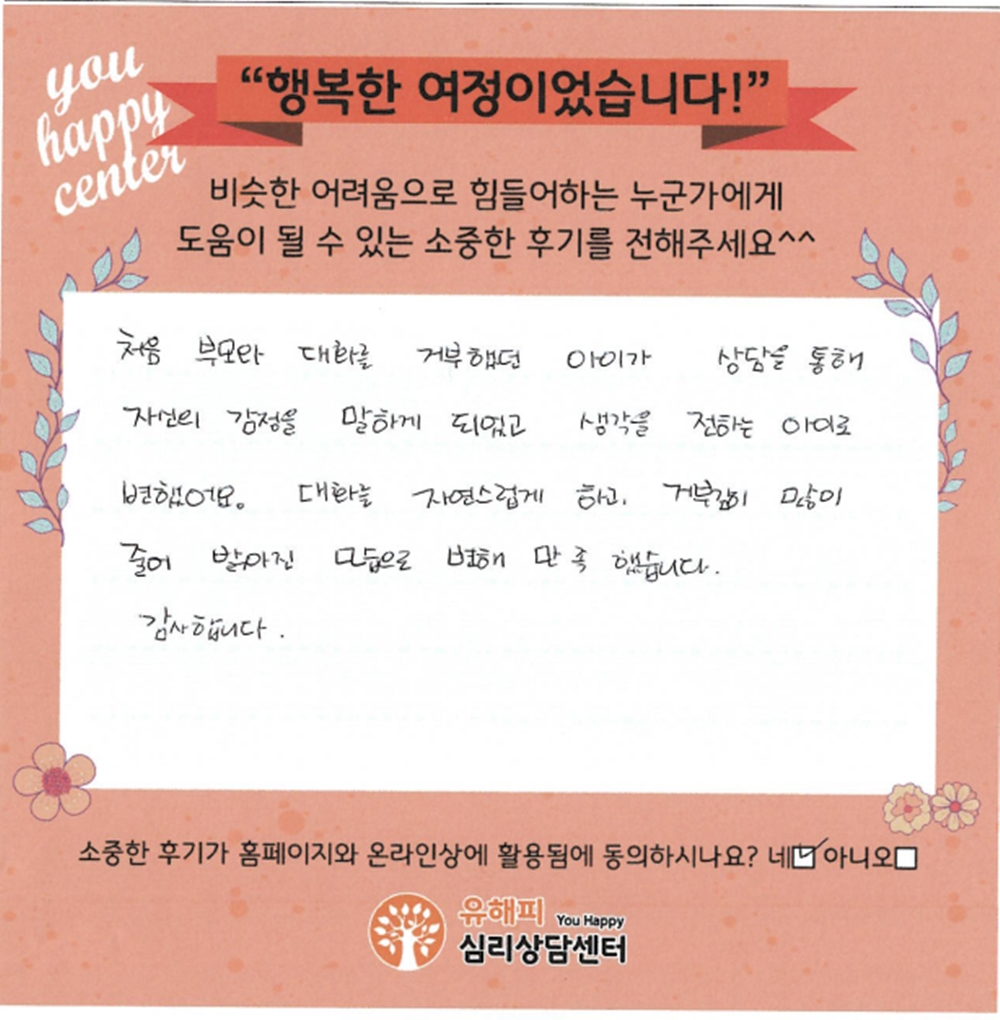 you
happy
center
“행복한 여정이었습니다!”
비슷한 어려움으로 힘들어하는 누군가에게
도움이 될 수 있는 소중한 후기를 전해주세요^^
처음 부모와 대화를 거부했던 아이가 상담을 통해
자신의 감정을 말하게 되었고 생각을 전하는 아이로
변했어요. 대화는 자연스럽게 하고, 거부감이 많이
줄어 밝아진 모습으로 변해 만족 했습니다.
감사합니다.
소중한 후기가 홈페이지와 온라인상에 활용됨에 동의하시나요? 네 아니오
유해피 You Happy
심리상담센터